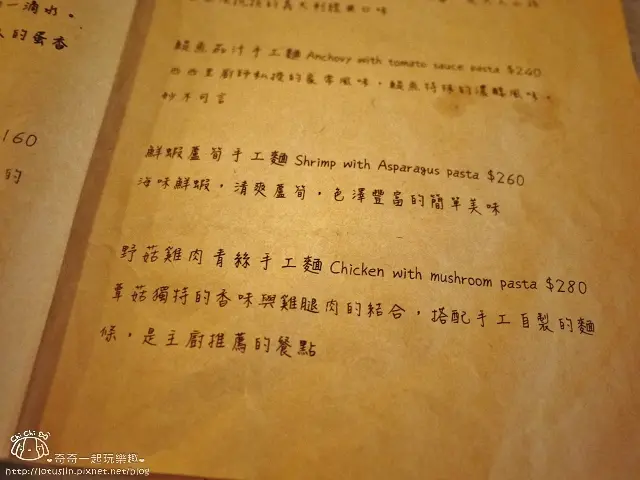 一滴水。
的蛋香
160
的
鯷魚茄汁手工麵 Anchovy with tomato sauce pasta $240
西西里廚師私授的家常風味，鯷魚特殊的濃醇風味，
妙不可言
鮮蝦蘆筍手工麵 Shrimp with Asparagus pasta $260
海味鮮蝦，清爽蘆筍，色澤豐富的簡單美味
野菇雞肉青絲手工麵 Chicken with mushroom pasta $280
蕈菇獨特的香味與雞腿肉的結合，搭配手工自製的麵
條，是主廚推薦的餐點
Chi Chi Do
奇奇一起玩樂趣
http://lotuslin.pixnet.net/blog